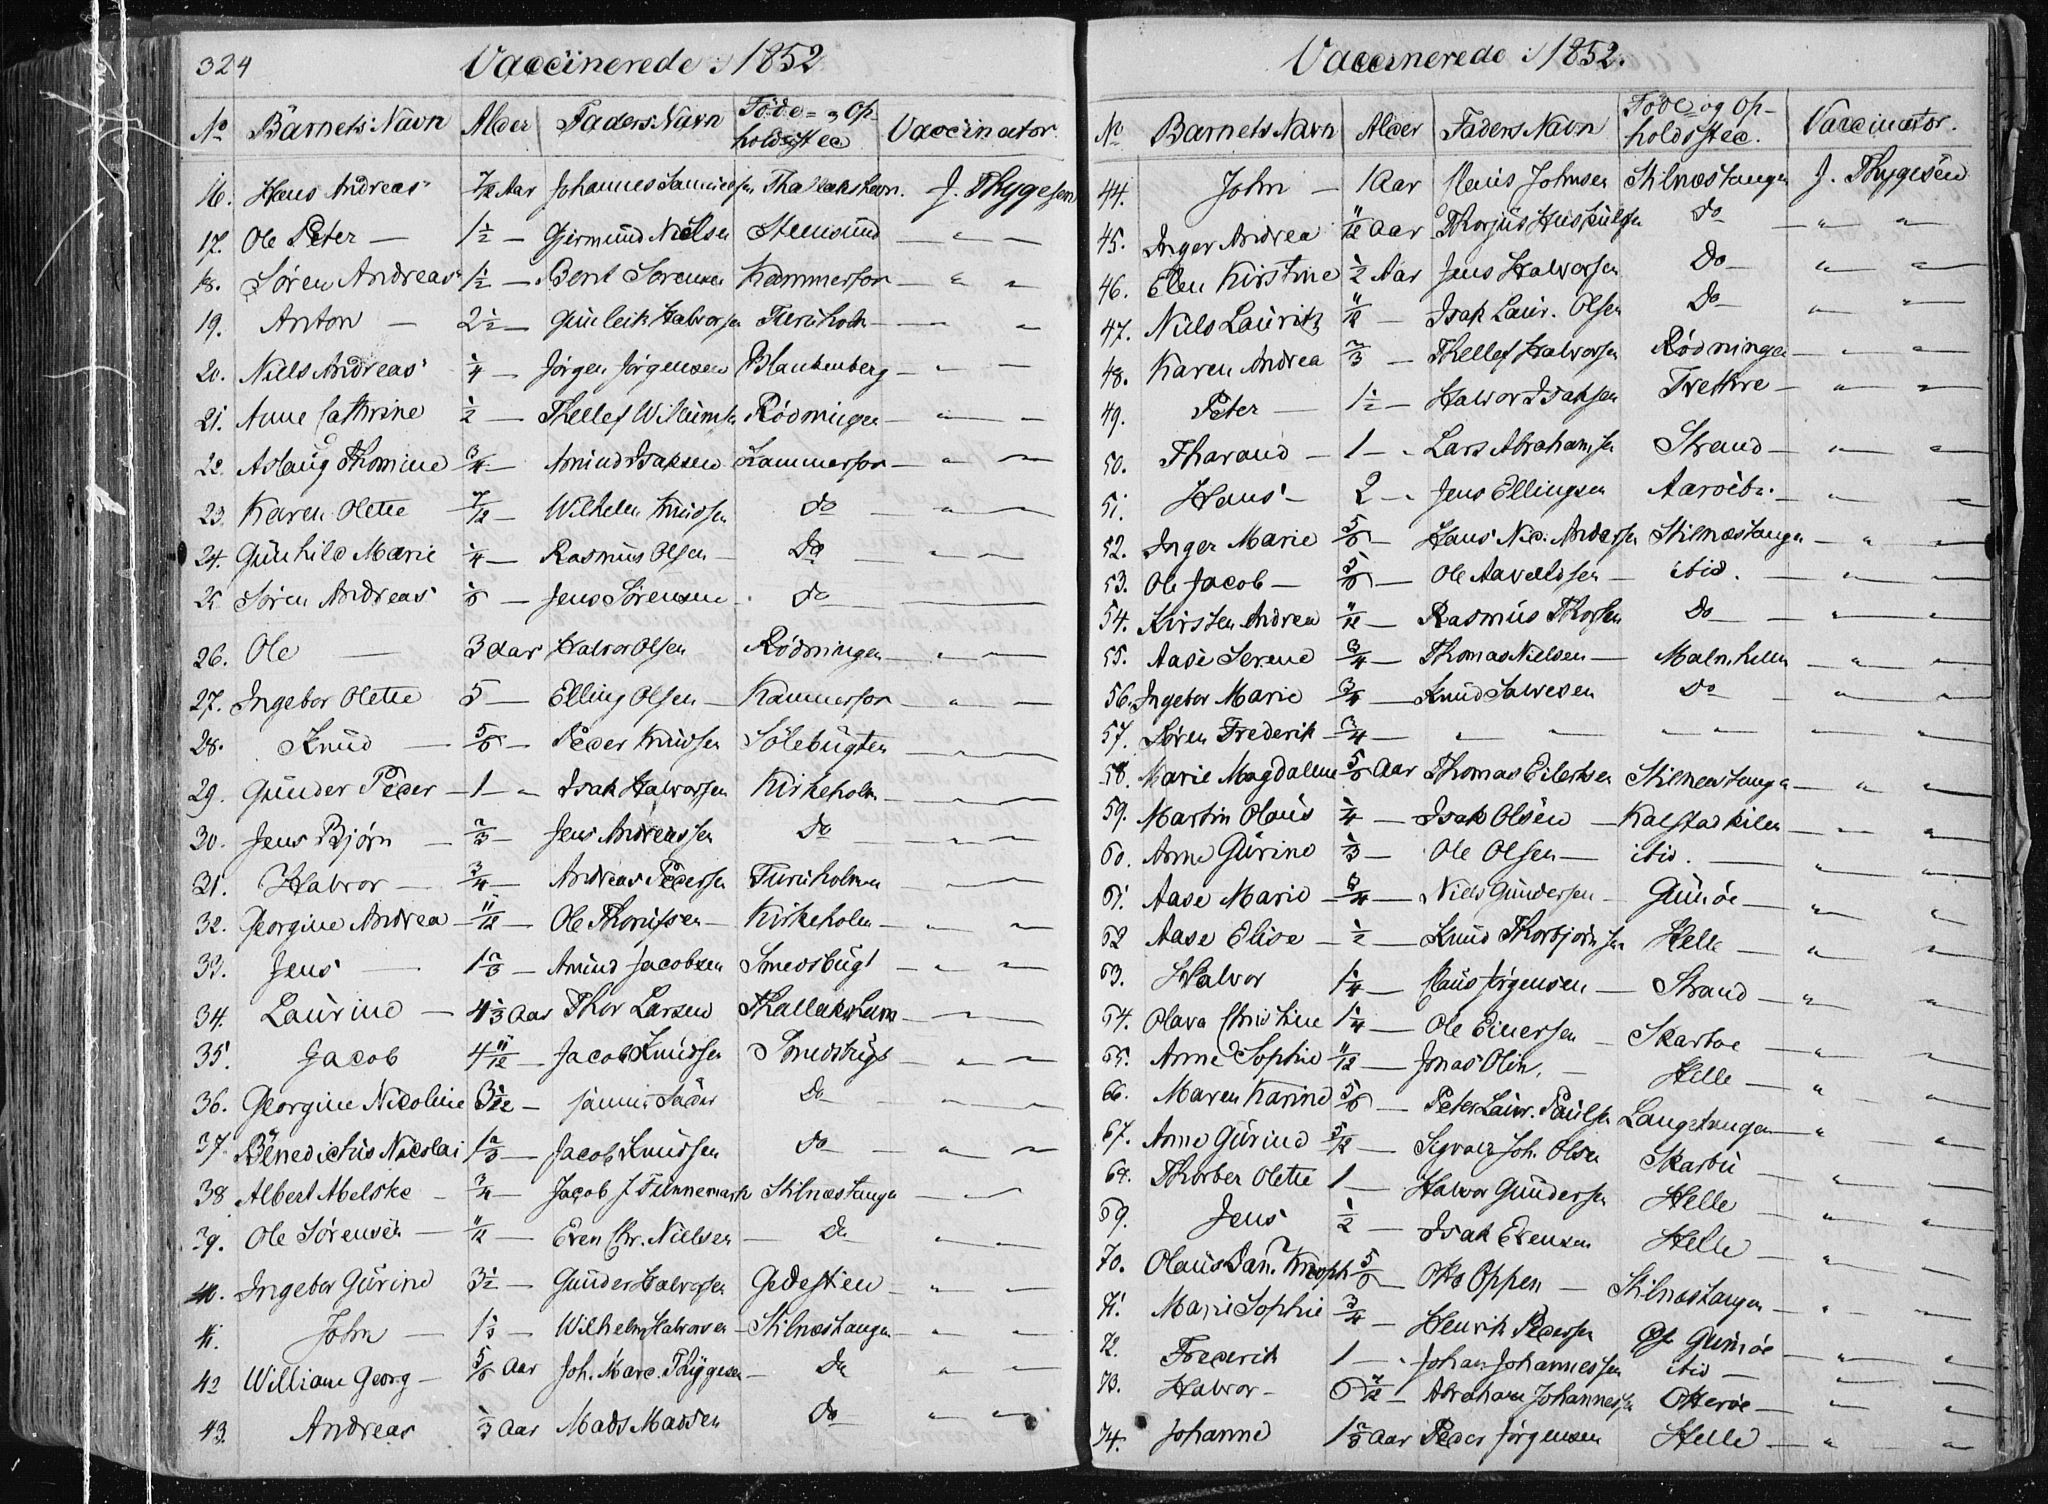 324
Vaccinerede i 1852
No Barnets Navn Alder Faders Navn Føde- og Op-
holdssted Vaccinator.
16. Hans Andreas 7/12 Aar Johannes Samuelsen J. Thygeson
17. Ole Peter — 1 1/2 — Germund Nielsen Steensund — " —
18. Søren Andreas 1 1/2 — Bent Sørensen Kammerfor — " —
19. Anton — 2 1/2 — Gunleik Halvorsen Furuholm — " —
20. Niels Andreas 1/4 — Jørgen Jørgensen Blankenberg — " —
21. Anne Cathrine 1/2 — Thellef Willumsen Rødningen — " —
22. Aslaug Thomine 3/4 — Amund Isaksen Kammerfor — " —
23. Karen Olette 7/12 — Wilhelm Knudsen Do — " —
24. Gunhild Marie 1/4 — Rasmus Olsen — Do — " —
25. Søren Andreas 1/6 — Jens Sørensen Do —
26. Ole — 3 Aar Halvor Olsen Rødningen — " —
27. Ingebor Olette 5 — Elling Olsen — Kammerfor — " —
28. Knud — 5/6 — Peder Knudsen Sölebugten —
29. Gunder Peder — 1 — " Isak Halvorsen Kirkeholm —
30. Jens Bjørn — 2/3 — Jens Andreassen Do —
31. Halvor — 3/4 — Andreas Pedersen Furuholmen
32. Georgine Andrea — 11/12 — Ole — Kirkeholm — " —
33. Jens — 1 2/3 — Amund Jacobsen Smedsbugt — " —
34. Laurine — 4 1/3 Aar Thor Larsen —
35. Jacob 4 11/12 — Jacob Knudsen Smedsbugt — " —
36. Georgine Nicoline 3 1/12 — Do —
37. Benedictus Nicolai 1 2/3 — Jacob Knudsen Do — " —
38 Albert Abelske — 3/4 — Jacob J. Finnemark Stilnæstangen —
39. Ole Sørensen — 11/12 — Even Chr. Nielsen — Do — " —
40. Ingebor Gurine 3 1/2 — Gunder Halvorsen — " —
41. John — 1 1/3 — Wilhelm Halvorsen — Stilnæstangen — " —
42 William Georg — 5/6 Aar Joh. Marc. Thygesen — Do — " —
43. Andreas 1/3 Aar Mads Madsen Do — " —
Vaccinerede i 1852.
No Barnets Navn Alder Faders Navn Føde- og Op-
holdssted. Vaccinator.
44. John — 1 Aar Claus Johnsen Stilnæstangen J. Thygesen
45. Inger Andrea 11/12 Aar Thorjus Do — " "
46. Elen Kirstine 1/2 Aar Jens Halvorsen Do — " "
47. Niels Lauritz 11/12 — Isak Laur. Olsen Do — " —
48. Karen Andrea 2/3 — Thellef Halvorsen Rødningen — " —
49. Peter — 1 1/2 — Halvor Isaksen Trettre — " —
50. Tharand — 1 — " Lars Abrahamsen Strand — " "
51. Hans — 2 — " Jens Ellingsen — " "
52. Inger Marie 5/6 — Hans Nic. Andersen Stilnæstangen — " "
53. Ole Jacob — 5/6 — Ole — ibid. — " "
54. Kirsten Andrea 11/12 — Rasmus Thorsen Do — " "
55. Aase Serene 3/4 — Thomas Nielsen — Malmhellen — " "
56. Ingebor Marie 3/4 — Knud Salvesen Do — " "
57. Søren Frederik — 3/4 — " " " " " "
58. Marie Magdalene 5/6 Aar Thomas Eilertsen Stilnæstangen — " "
59. Martin Olaus 1/4 — Isak Olsen — Kalstadkilen — " "
60. Anne Gurine 1/3 — Ole Olsen — ibid. — " "
61. Aase Marie — 3/4 — Niels Gundersen — Gumøe — " "
62 Aase Elise — 1/2 — Knud Thorbjørnsen Helle — " "
63. Halvor 1 1/4 — Claus Jørgensen — Strand — " "
64. Olava Christine 1 1/4 — Ole Einersen — Skarboe — " "
65. Anne Sophie 11/12 — Jonas Olsen, — Helle — " "
66. Maren Karine 5/6 — Peter Laur. Paulsen Langetangen — " "
67. Anne Gurine 5/12 — Sigvald Joh. Olsen Skarbu — " "
68. Thorber Olette 1 — Halvor Gundersen Helle — " "
69. Jens 1/2 — Isak Evensen Helle — " "
70. Olaus Dan. Knoph 5/6 — Otto Oppen — Stilnæstangen — " "
71. Marie Sophie 3/4 — Henrik Pedersen Gumøe — " "
72. Frederik 1 — " Johan Johannessen ibid — " "
73. Halvor — 6 7/12 — Abraham Johannessen Otterøe — " "
74. Johanne 1 2/3 Aar Peder Jørgensen Helle — " "